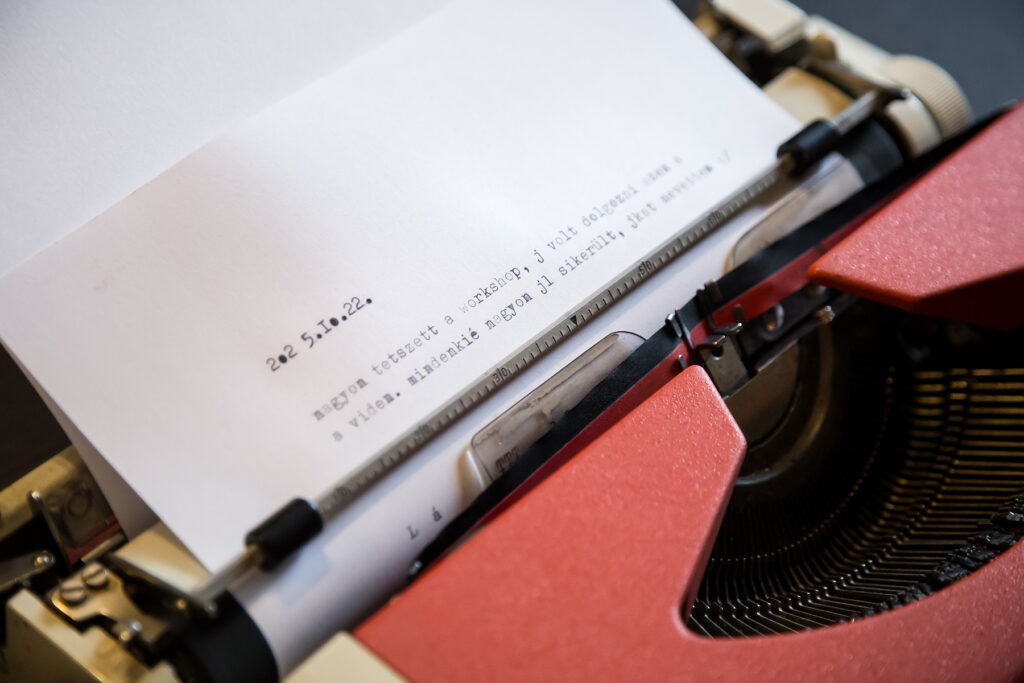 2o2 5.Io.22.
nagyon tetszett a workshop, j volt dolgozni ezen a
a viden. mindenkié nagyon jl sikerült, jkat nevettem :/
L á